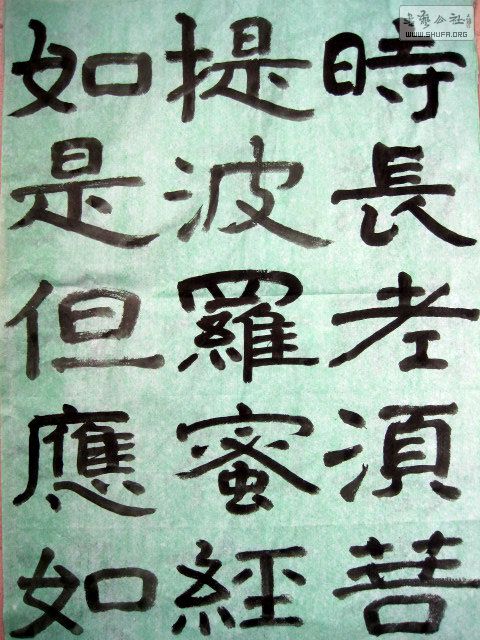 時長老湏菩
提波羅蜜經
如是但應如
書藝公社
WWW.SHUFA.ORG